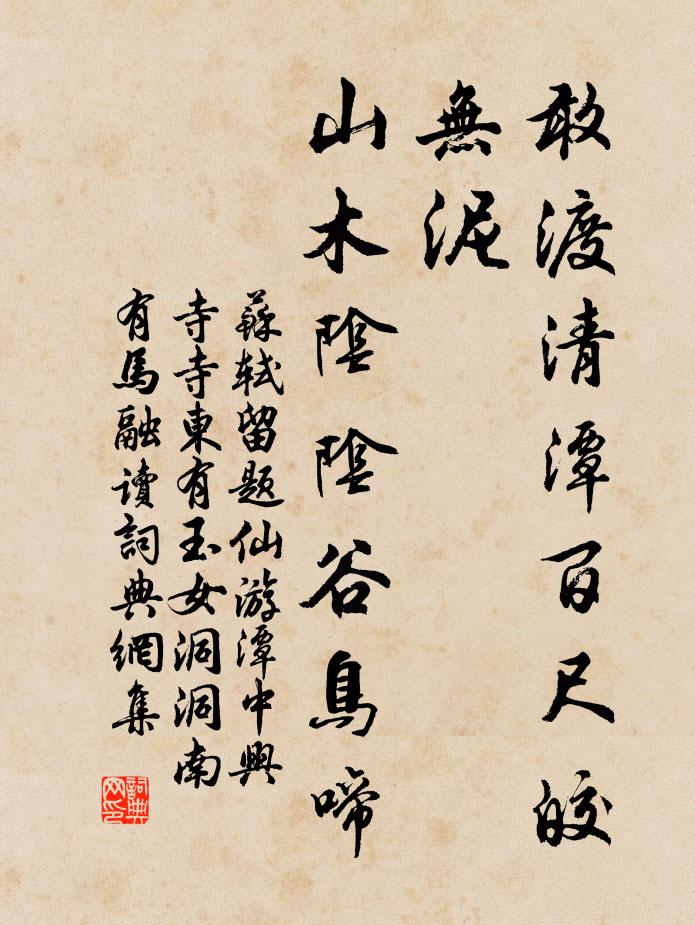 敢渡清潭百尺皎
無泥
山木陰陰谷鳥啼
蘇軾留題仙游潭中興
寺寺東有玉女洞洞南
有馬融讀詞典網集
詞典
网印